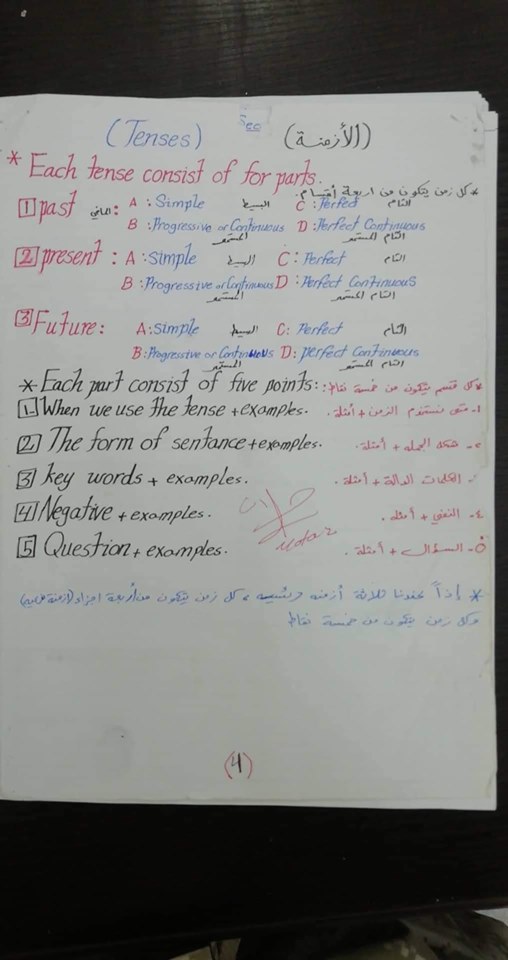 (Tenses) Sec (الأزمنة)
* Each tense consist of for parts.
* كل زمن يتكون من اربعة أقسام.
1 past الماضي : A : Simple البسيط C : Perfect التام
B : Progressive or Continuous المستمر D : Perfect Continuous التام المستمر
2 present : A : Simple البسيط C : Perfect التام
B : Progressive or Continuous المستمر D : Perfect Continuous التام المستمر
3 Future : A : Simple البسيط C : Perfect التام
B : Progressive or Continuous المستمر D : perfect Continuous التام المستمر
* Each part consist of five points : * كل قسم يتكون من خمسة نقاط :
1 When we use the tense + examples. ١- متى نستخدم الزمن + أمثلة.
2 The form of sentence + examples. ٢- شكل الجملة + أمثلة.
3 key words + examples. الكلمات الدالة + أمثلة.
4 Negative + examples. ٤- النفي + أمثلة.
5 Question + examples. ٥- السؤال + أمثلة.
* إذاً عندنا ثلاثة أزمنه رئيسيه وكل زمن يتكون من أربعة اجزاء
وكل زمن يتكون من خمسة نقاط
(4)